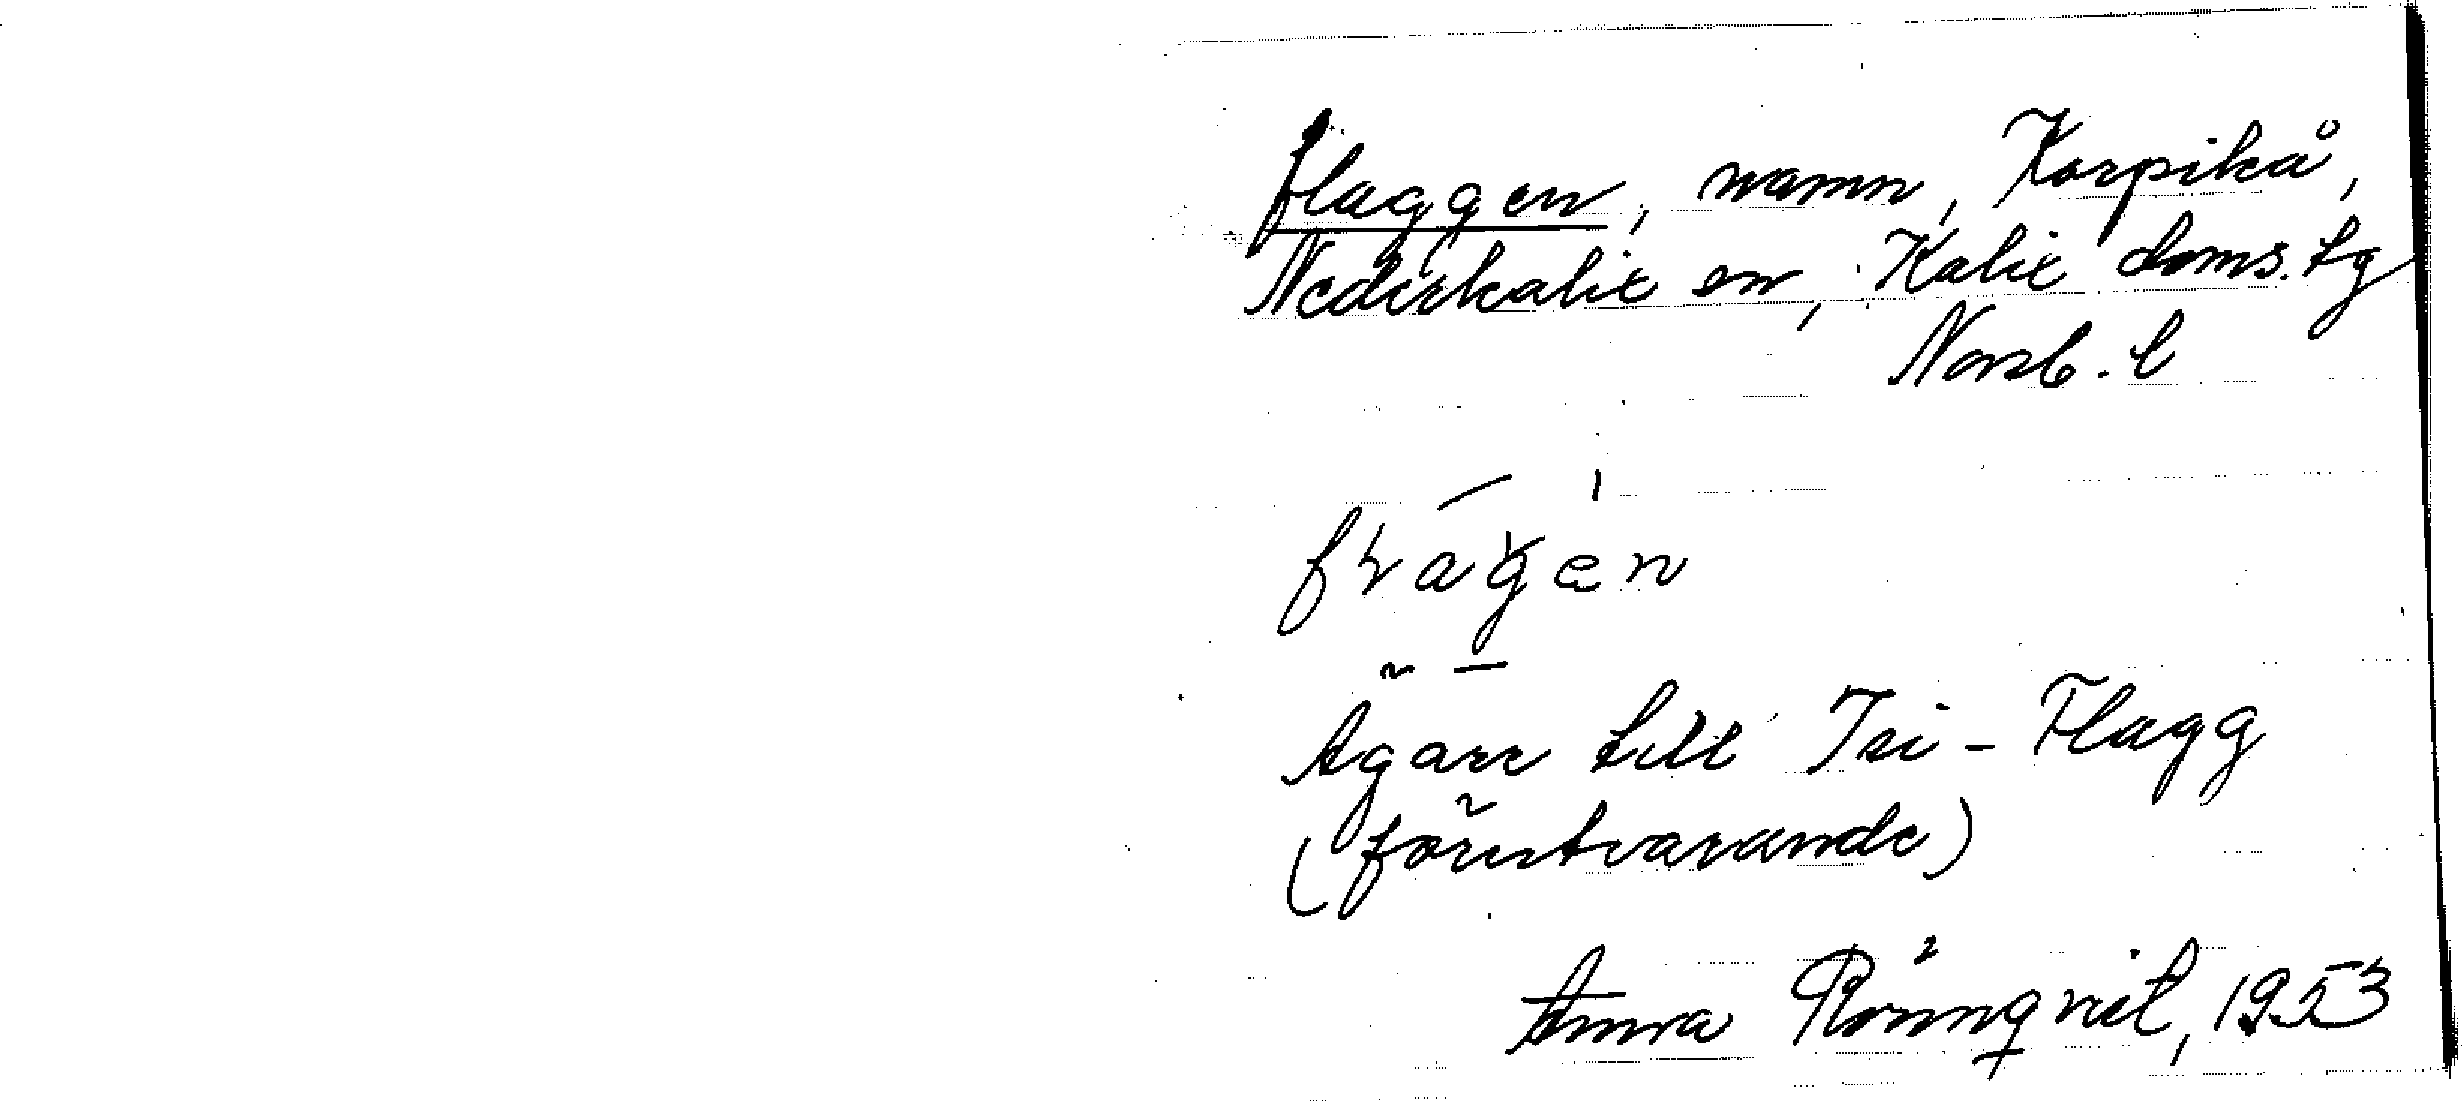 flaggen, namn, Korpikå,
Nederkalix sn, Kalix doms.tg
Norrb. l
Ägare till Isi-Flagg
(förutvarande)
Anna Rönnqvist, 1953